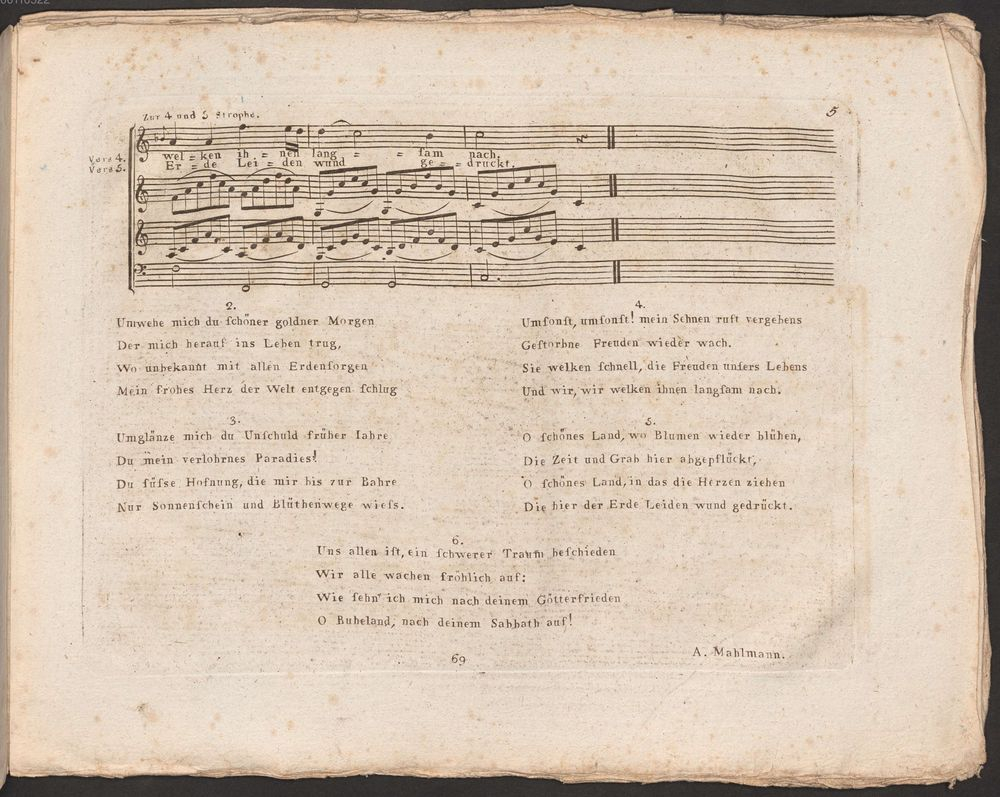 00110322
5
Zur 4 und 5 Strophe.
Vers 4. wel = ken ih = nen lang = = sam nach.
Vers 5. Er = de Lei = den wund ge = = drückt.
2.
Umwehe mich du ſchöner goldner Morgen
Der mich herauf ins Leben trug,
Wo unbekannt mit allen Erdenſorgen
Mein frohes Herz der Welt entgegen ſchlug
3.
Umglänze mich du Unſchuld früher Iahre
Du mein verlohrnes Paradies!
Du ſüſse Hofnung, die mir bis zur Bahre
Nur Sonnenſchein und Blüthenwege wieſs.
4.
Umſonſt, umſonſt! mein Sehnen ruft vergebens
Geſtorbne Freuden wieder wach.
Sie welken ſchnell, die Freuden unſers Lebens
Und wir, wir welken ihnen langſam nach.
5.
O ſchönes Land, wo Blumen wieder blühen,
Die Zeit und Grab hier abgepflückt,
O ſchönes Land, in das die Herzen ziehen
Die hier der Erde Leiden wund gedrückt.
6.
Uns allen iſt, ein ſchwerer Traum beſchieden
Wir alle wachen fröhlich auf:
Wie ſehn' ich mich nach deinem Götterfrieden
O Ruheland, nach deinem Sabbath auf!
A. Mahlmann.
69